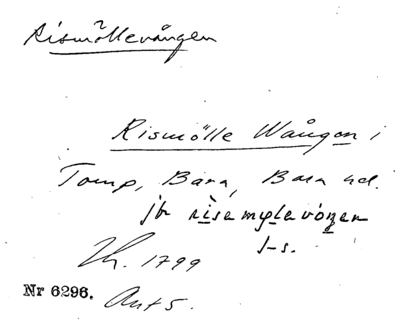 Rismöllevången
Rismölle Wången i
Tomp, Bara, Bara hd.
jfr risemylavóŋen
1-s.
1799
Nr 6296. Ant 5.